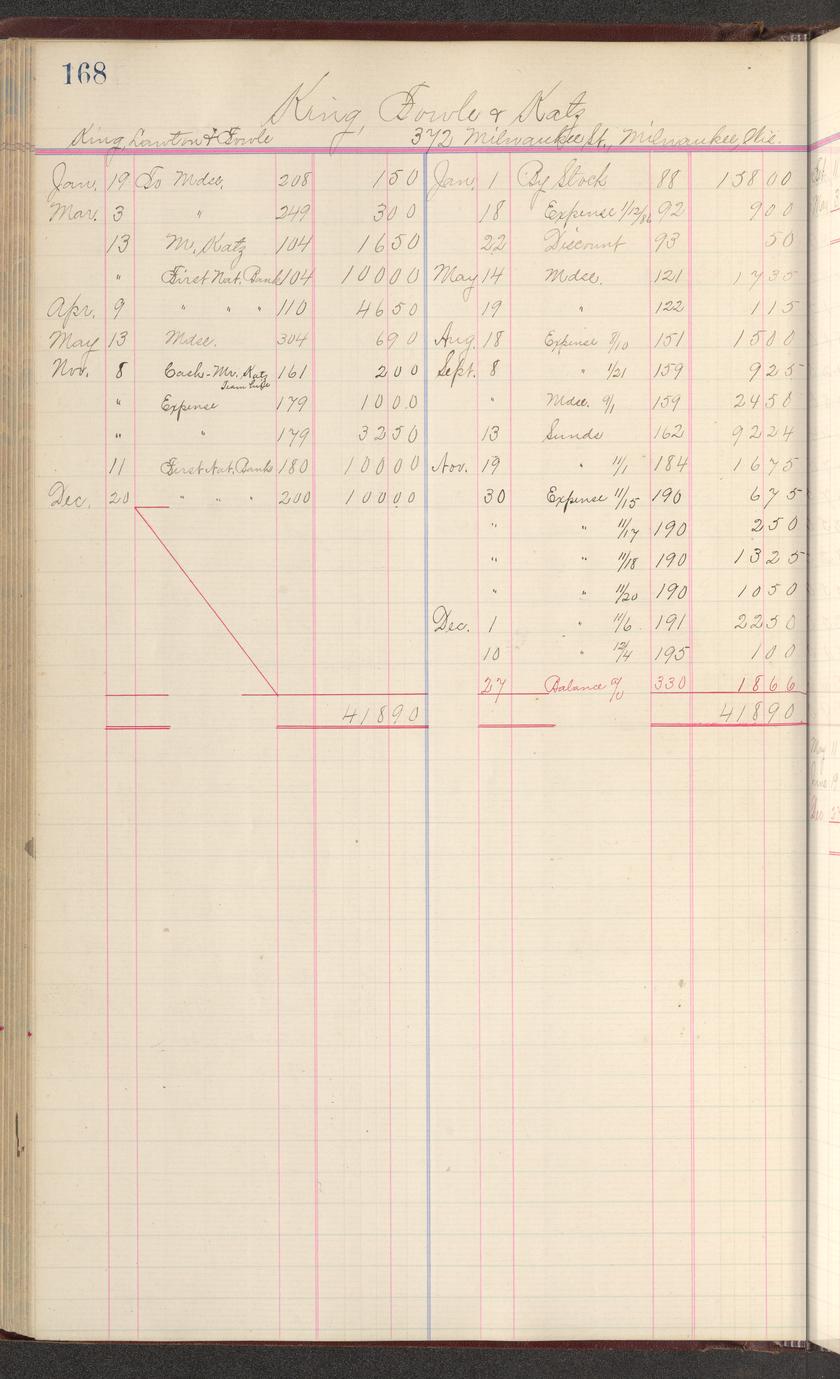 168
King, Fowle & Katz
King, Lawton & Fowle 372 Milwaukee St., Milwaukee, Wis.
Jan. 19 To Mdse. 208 1 50 Jan. 1 By Stock 88 158 00
Mar. 3 " 249 3 00 18 Expense 1/12/06 92 9 00
13 Mr. Katz 104 16 50 22 Discount 93 50
" First Nat. Bank 104 100 00 May 14 Mdse. 121 17 35
Apr. 9 " " " 110 46 50 19 " 122 1 15
May 13 Mdse. 304 6 90 Aug. 18 Expense 8/10 151 15 00
Nov. 8 Cash - Mr. Katz 161 2 00 Sept. 8 " 1/21 159 9 25
" Expense 179 10 00 " Mdse. 9/1 159 24 50
" " 179 32 50 13 Sunds 162 92 24
11 First Nat. Bank 180 100 00 Nov. 19 " 11/1 184 16 75
Dec. 20 " " " 200 100 00 30 Expense 11/15 190 6 75
" " 11/17 190 2 50
" " 11/18 190 13 25
" " 11/20 190 10 50
Dec. 1 " 11/6 191 22 50
10 " 12/4 195 1 00
27 Balance 330 18 66
418 90 418 90